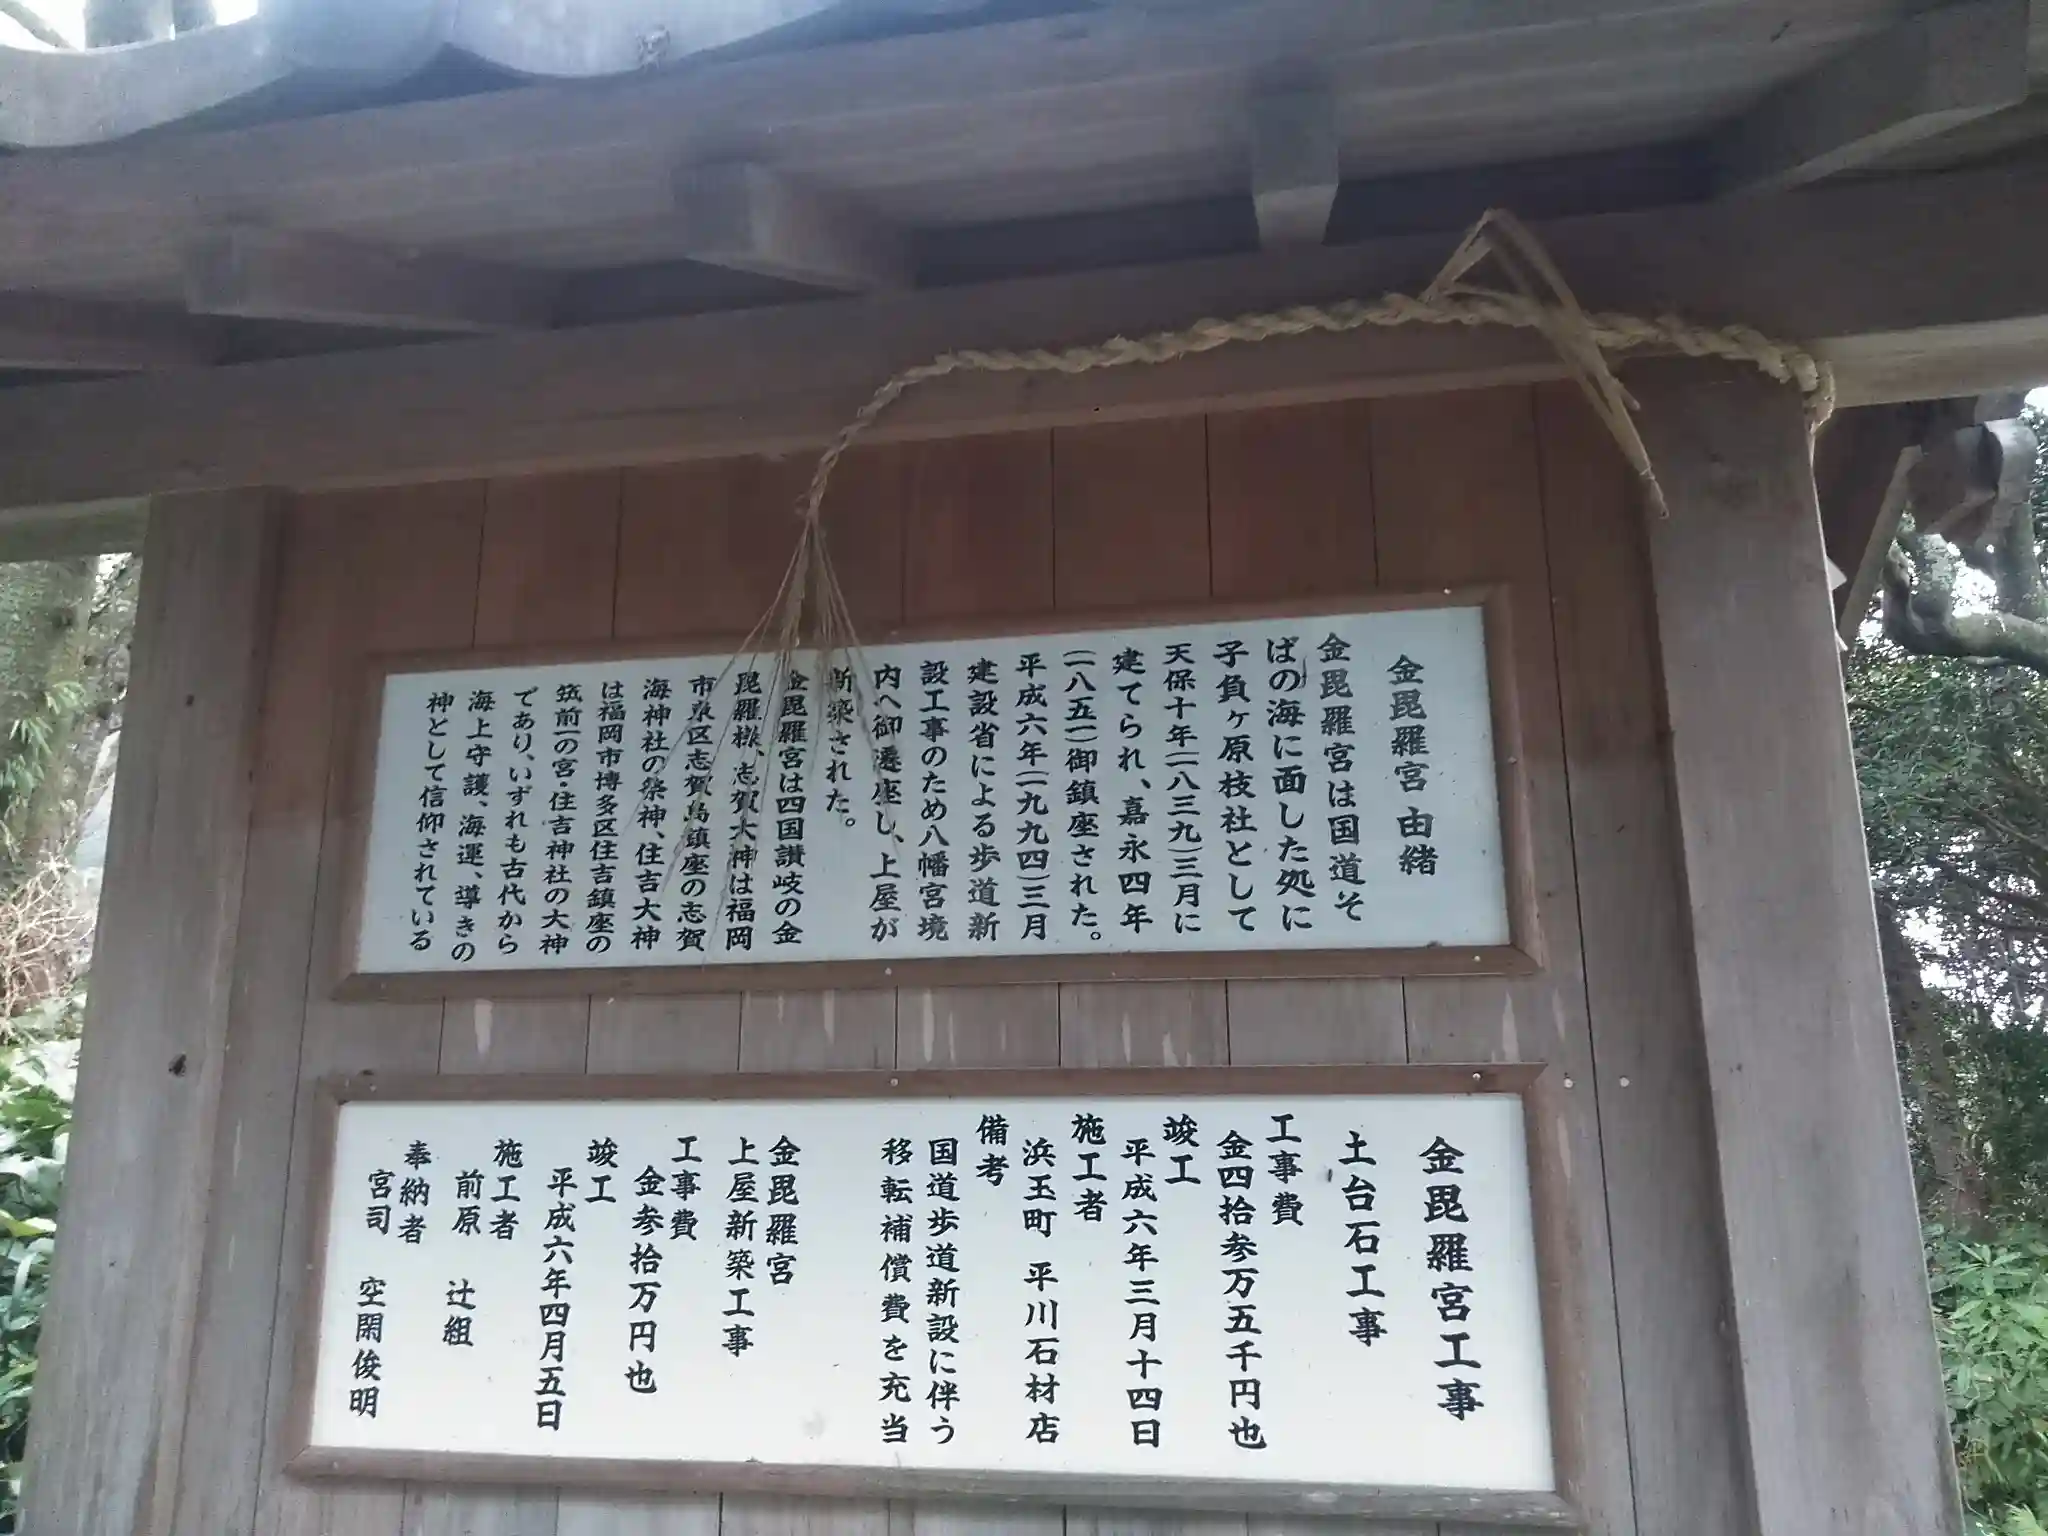 金毘羅宮 由緒
金毘羅宮は国道そ
ばの海に面した処に
子負ヶ原枝社として
天保十年(一八三九)三月に
建てられ、嘉永四年
(一八五一)御鎮座された。
平成六年(一九九四)三月
建設省による歩道新
設工事のため八幡宮境
内へ御遷座し、上屋が
新築された。
金毘羅宮は四国讃岐の金
毘羅様、志賀大神は福岡
市東区志賀島鎮座の志賀
海神社の祭神、住吉大神
は福岡市博多区住吉鎮座の
筑前一の宮・住吉神社の大神
であり、いずれも古代から
海上守護、海運、導きの
神として信仰されている
金毘羅宮工事
土台石工事
工事費
金四拾参万五千円也
竣工
平成六年三月十四日
施工者
浜玉町 平川石材店
備考
国道歩道新設に伴う
移転補償費を充当
金毘羅宮
上屋新築工事
工事費
金参拾万円也
竣工
平成六年四月五日
施工者
前原 辻組
奉納者
宮司 空閑俊明